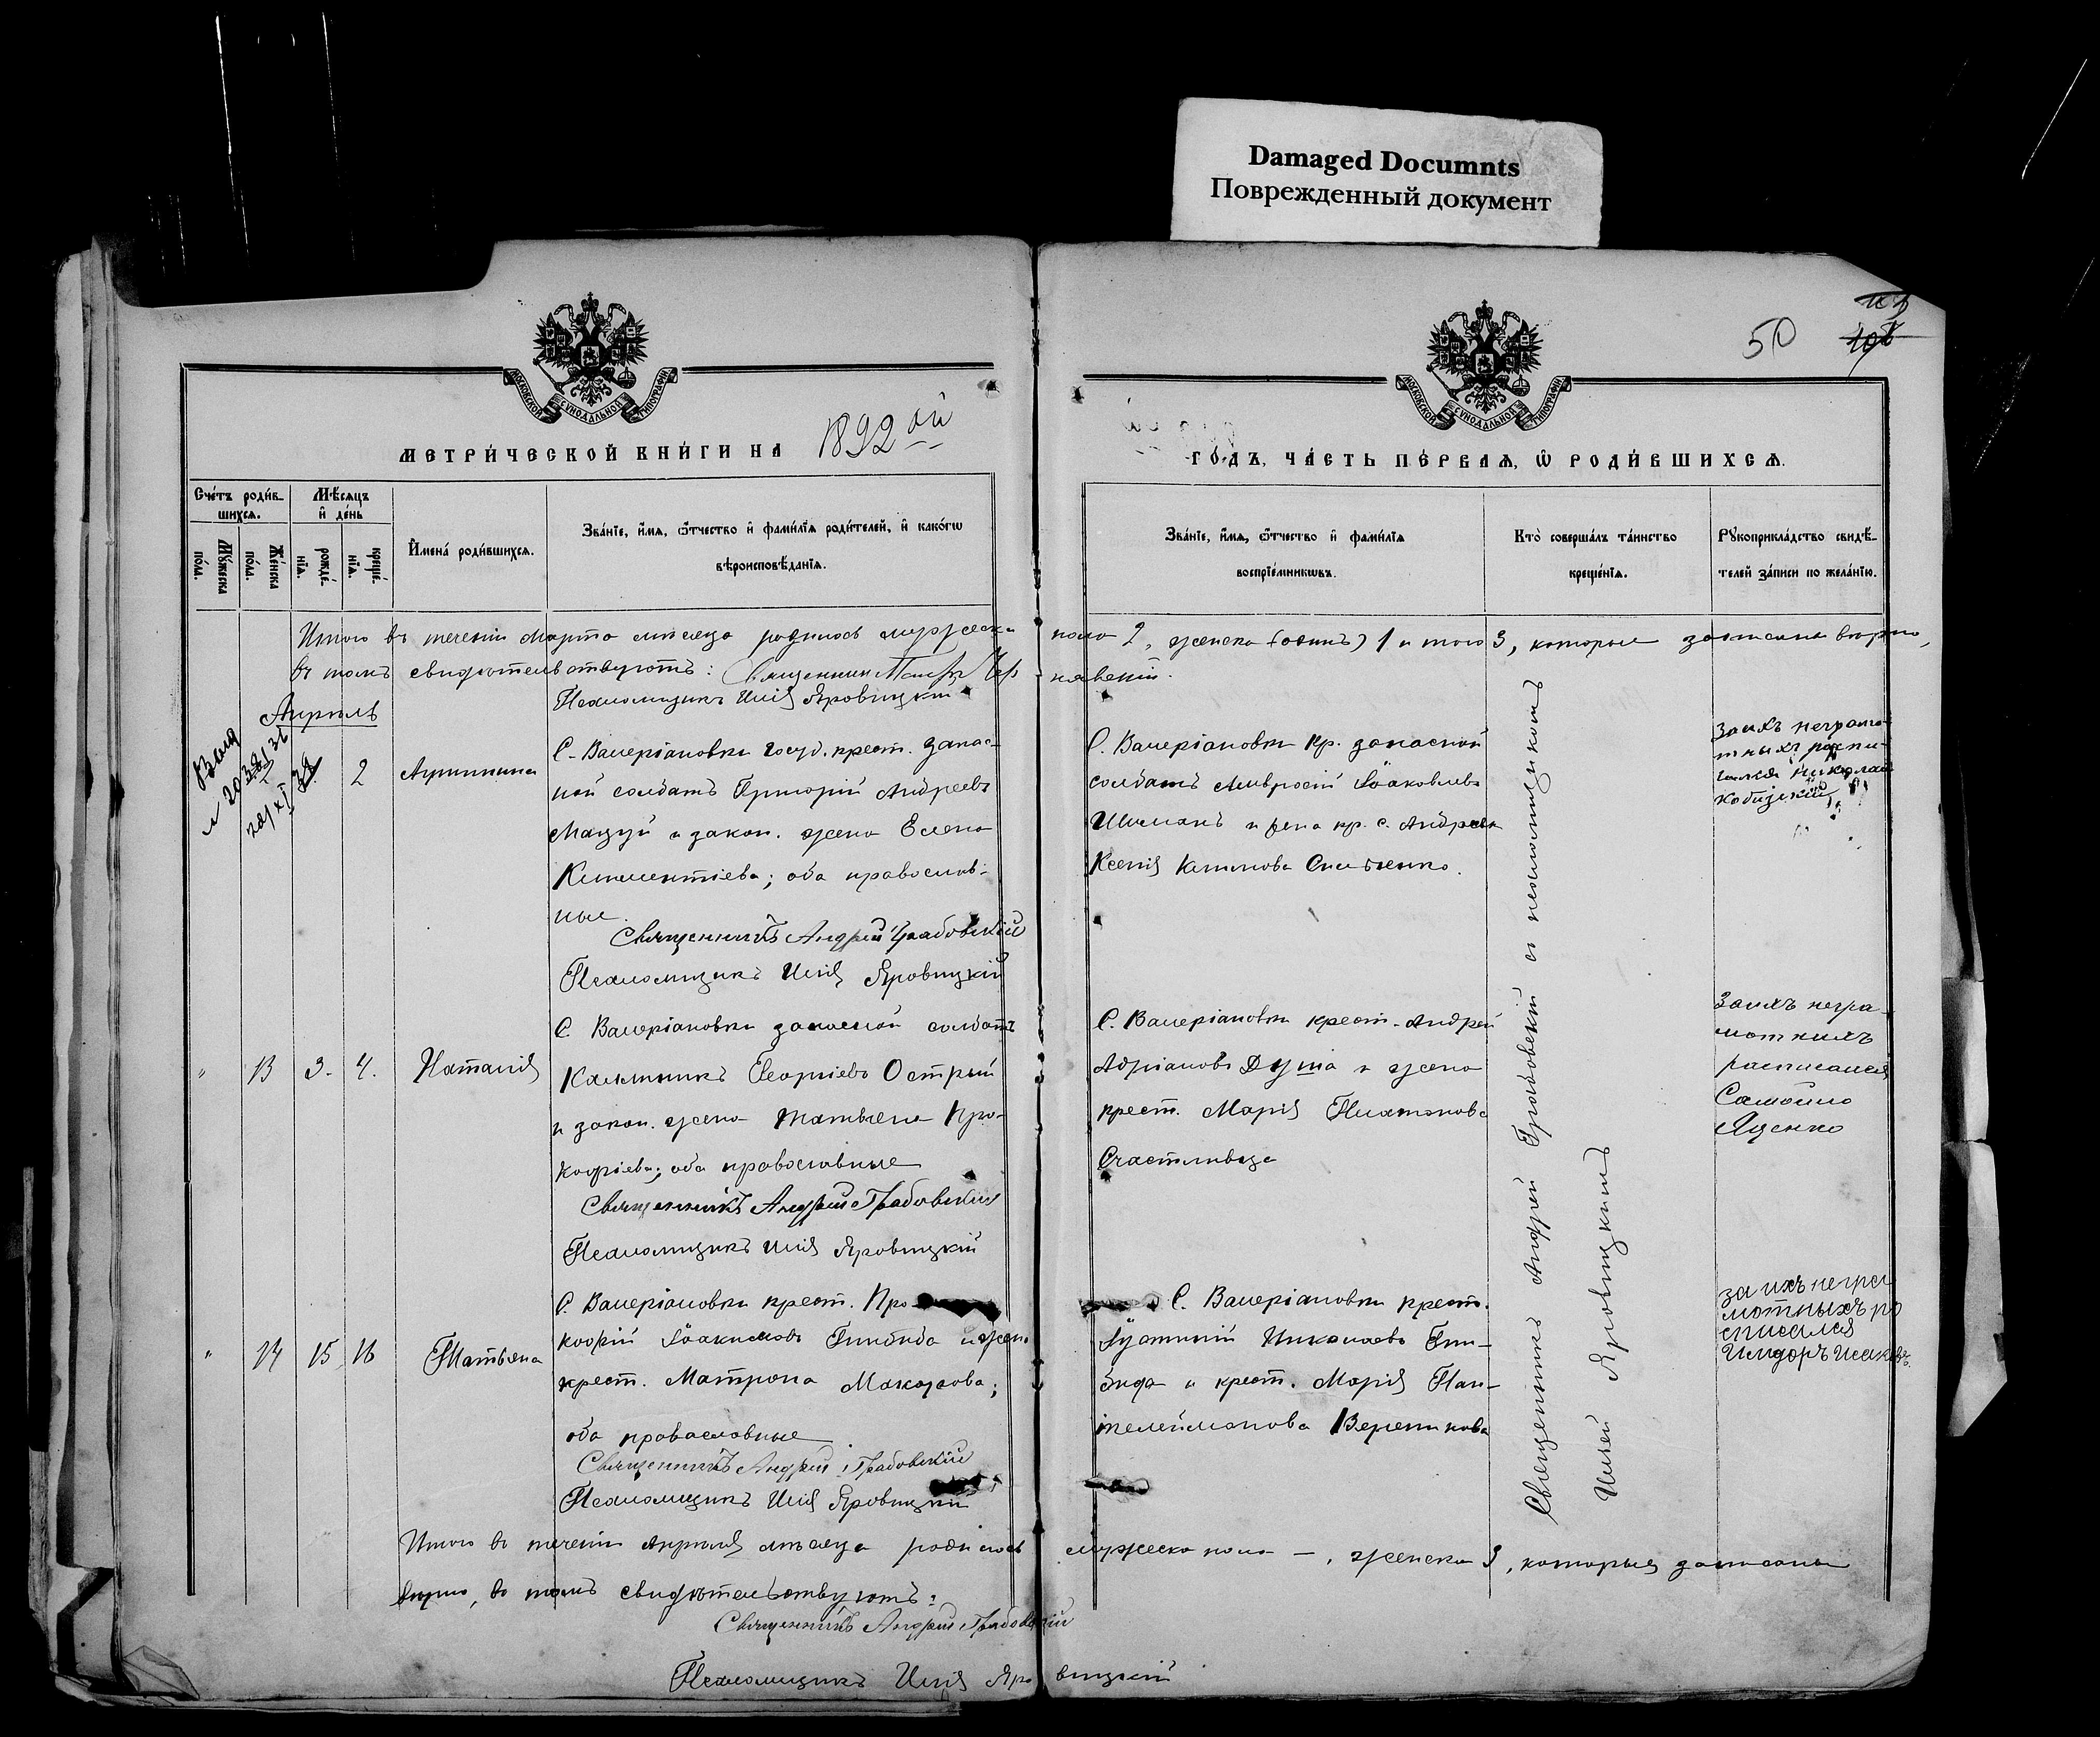 Damaged Documnts
Поврежденный документ
50
МОСКОВСКОЙ СѴНОДАЛЬНОЙ ТИПОГРАФІИ
МОСКОВСКОЙ СѴНОДАЛЬНОЙ ТИПОГРАФІИ
МЕТРИ́ЧЕСКОЙ КНИ́ГИ НА 1892ой
ГО́ДЪ, ЧА́СТЬ ПЕ́РВАЯ, Ѽ РОДИ́ВШИХСЯ.
Сче́тъ роди́в-
шихся.
Мѣ́сяцъ
и҆ де́нь
Мꙋ́жеска
по́ла.
Же́нска
по́ла.
рожде́-
нїя.
креще́-
нїя.
И҆мена̀ роди́вшихся.
Зва́нїе, и҆́мя, ѻ҆́тчество и҆ фами́лїя роди́телей, и҆ како́гѡ
вѣроисповѣ́данїя.
Зва́нїе, и҆́мя, ѻ҆́тчество и҆ фами́лїя
воспрїе́мникѡвъ.
Кто̀ соверша́лъ та́инство
креще́нїя.
Рꙋкоприкла́дство свидѣ́-
телей за́писи по жела́нїю.
Итого въ теченіи Марта мѣсяца родилось мужеска пола 2, женска (одинъ) 1 итого 3, которые записаны вѣрно,
въ томъ свидѣтельствуютъ: Священникъ
Псаломщикъ Илія Яровицкій
Апрѣль
2
Агриппина
С. Валеріановки госуд. крест. запас-
ной солдатъ Григорій Андреевъ
Мацуй и закон. жена Елена
Климентіева; оба православ-
ные.
Священникъ Андрей Грабовскій
Псаломщикъ Илія Яровицкій
С. Валеріановки кр. запасной
солдатъ Амвросій Іоаковлевъ
Шиманъ и жена кр. с. Андреевки
Ксенія Климова
За ихъ неграмо-
тныхъ распи-
сался Николай
Кобизскій
" 13 3. 4. Наталія
С. Валеріановки запасной солдатъ
Каллиникъ Георгіевъ Острый
и закон. жена Татьяна Про-
кофіева; оба православные
Священникъ Андрей Грабовскій
Псаломщикъ Илія Яровицкій
С. Валеріановки крест. Андрей
Адріановъ Душа и жена
крест. Марія Платонова
Счастливца
За ихъ негра-
мотныхъ
расписался
Самойло
Яценко
" 14 15 16 Татьяна
С. Валеріановки крест. Про-
кофій Іоакимовъ Гнибида и жена
крест. Матрона Макарова;
оба православные
Священникъ Андрей Грабовскій
Псаломщикъ Илія Яровицкій
С. Валеріановки крест.
Іустиній Николаевъ Гни-
бида и крест. Марія Пан-
телеймонова Веретникова
за ихъ негра
мотныхъ ро
списался
Исидоръ Исаковъ.
Священникъ Андрей Грабовскій и псаломщикомъ
Иліей Яровицкимъ
Итого въ теченіи Апрѣля мѣсяца родилось мужеска пола —, женска 3, которыя записаны
вѣрно, въ томъ свидѣтельствуютъ:
Священникъ Андрей Грабовскій
Псаломщикъ Илія Яровицкій